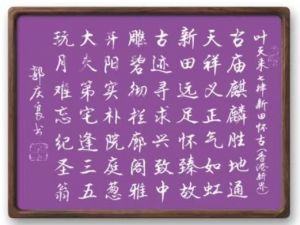 叶天来七律新田怀古(香港新界)
古庙麒麟胜地通
天祥义正气如虹
新田远足怀臻故
古迹寻求兴致中
雕碧砌栏廊阁雅
开阳实朴院庭葱
大夫第宅逢三五
玩月难忘纪圣翁
郭庆良书